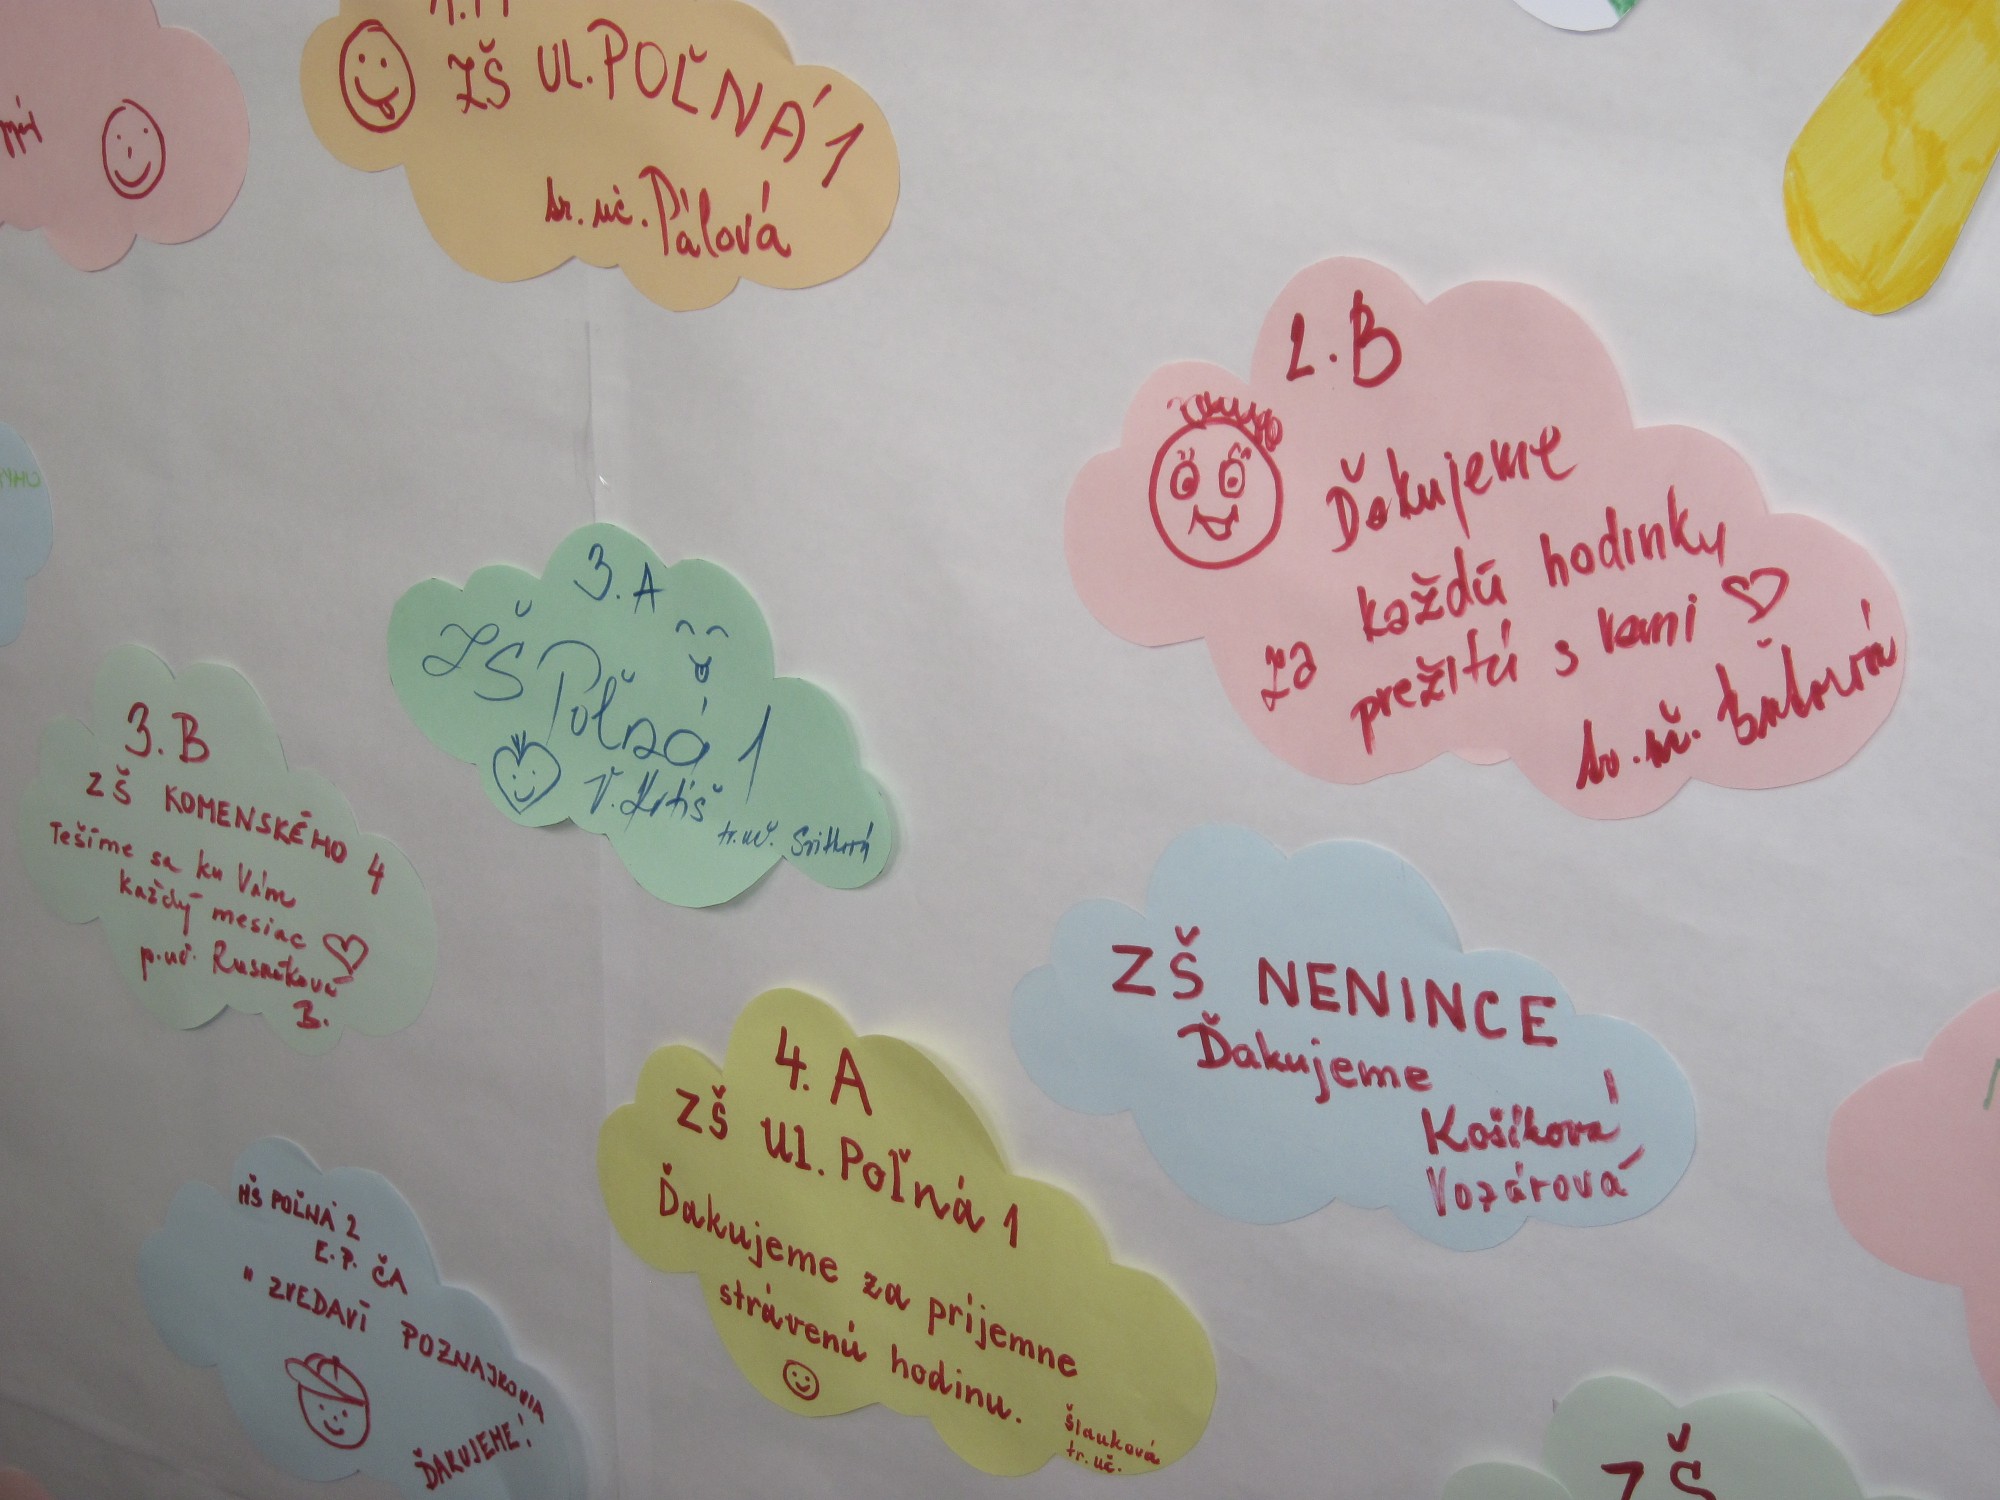 ZŠ UL. POĽNÁ 1
tr. uč. Pálová
2.B
Ďakujeme
za každú hodinky
prežitú s vami
tr. uč.
3.A
ZŠ Poľná 1
V. Krtíš
tr. uč.
3.B
ZŠ KOMENSKÉHO 4
Tešíme sa ku Vám
každý mesiac
p. uč. Rusnáková
B.
ZŠ NENINCE
Ďakujeme
Košíková
Vozárová
4. A
ZŠ Ul. Poľná 1
Ďakujeme za príjemne
strávenú hodinu.
Šlauková
tr. uč.
MŠ POĽNÁ 2
E.P. ČA
" ZVEDAVÍ POZNAJKOVIA
ĎAKUJEME!
ZŠ